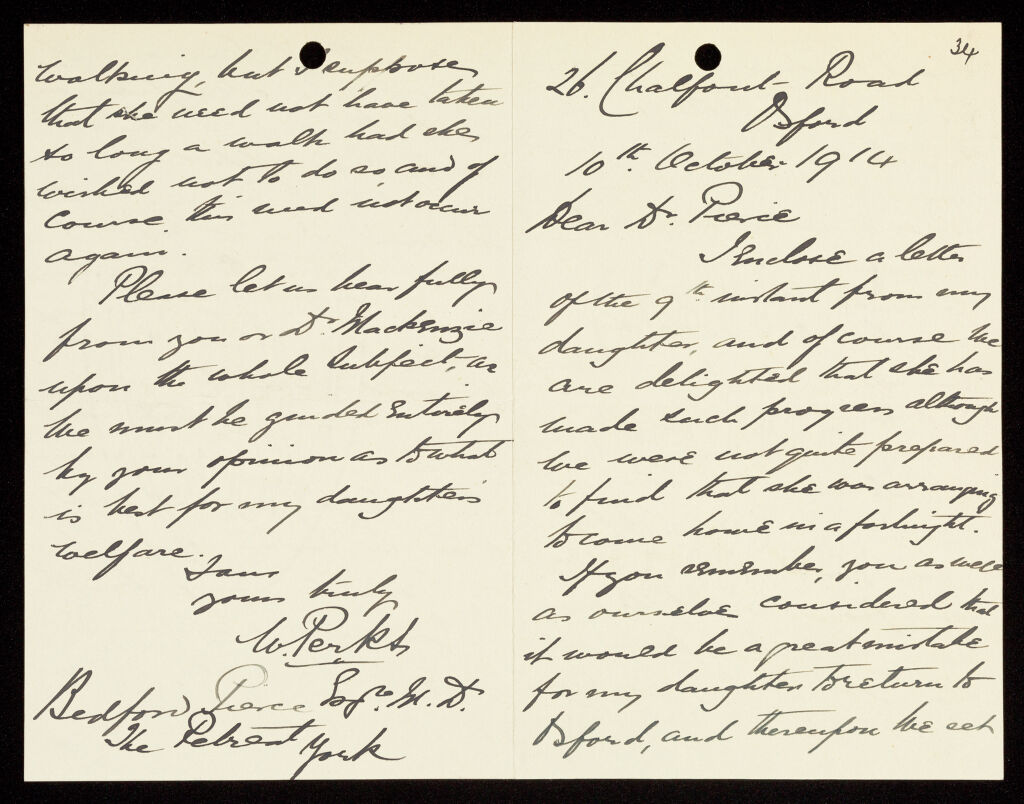 34
26. Chalfont Road
Oxford
10th. October 1914
Dear Dr. Pierce
I enclose a letter
of the 9th instant from my
daughter, and of course we
are delighted that she has
made such progress although
we were not quite prepared
to find that she was arranging
to come home in a fortnight.
If you remember, you as well
as ourselves considered that
it would be a great mistake
for my daughter to return to
Oxford, and thereupon we set
walking, but I suppose
that she need not have taken
so long a walk had she
wished not to do so and of
course this need not occur
again.
Please let us hear fully
from you or Dr. Mackenzie
upon the whole subject, as
we must be guided entirely
by your opinion as to what
is best for my daughter's
welfare.
I am
yours truly
W. Perkts
Bedford Pierce Esqre. M. D.
The Retreat York